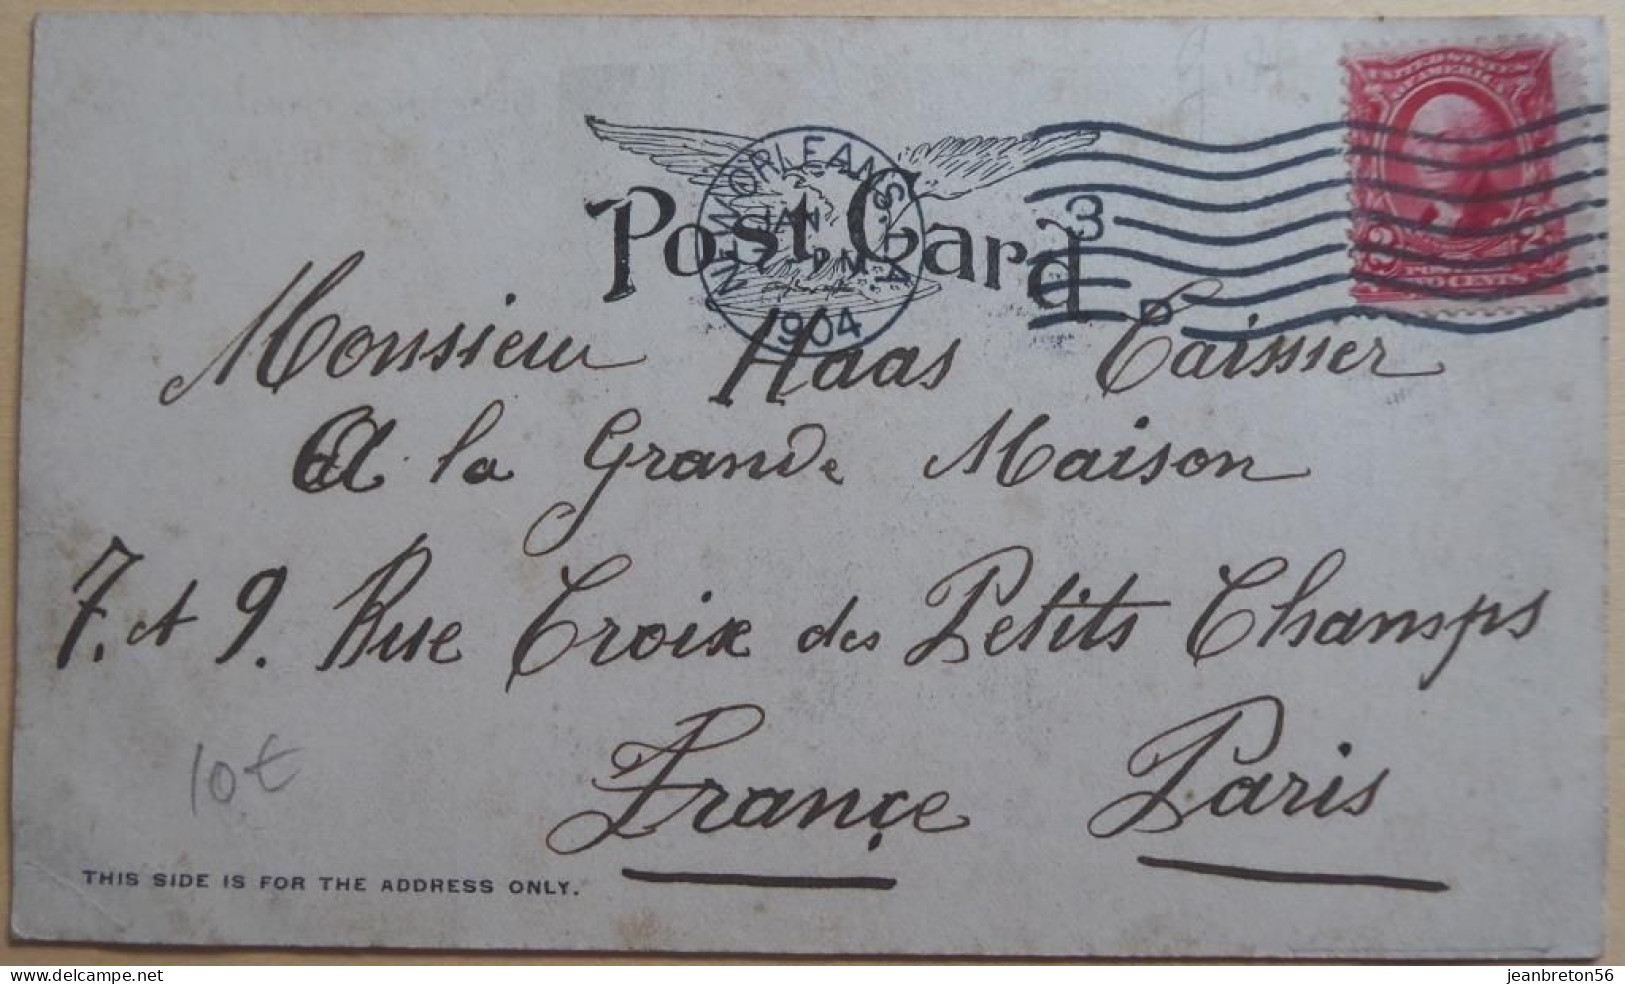 UNITED STATES OF AMERICA
NEW ORLEANS
JAN
PM
1904
3
D
2 2
POSTAGE
TWO CENTS
Post Card
Monsieur Haas Caissier
A la Grande Maison
7. et 9. Rue Croix des Petits Champs
France Paris
10 €
THIS SIDE IS FOR THE ADDRESS ONLY.
delcampe.net
jeanbreton56